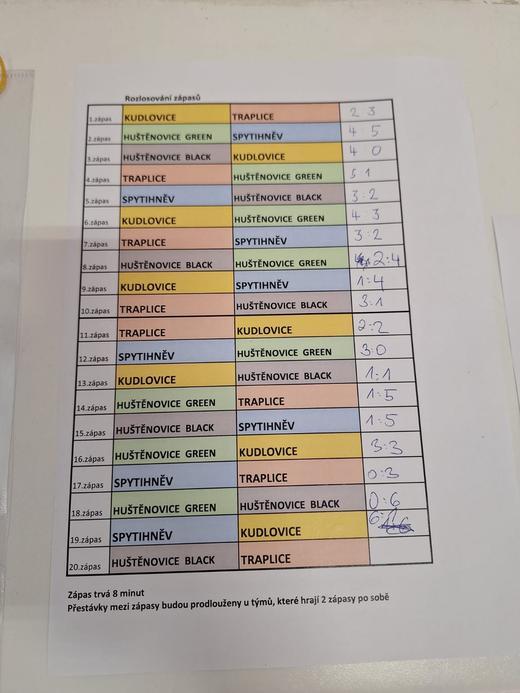 Rozlosování zápasů
1.zápas KUDLOVICE TRAPLICE 2 3
2.zápas HUŠTĚNOVICE GREEN SPYTIHNĚV 4 5
3.zápas HUŠTĚNOVICE BLACK KUDLOVICE 4 0
4.zápas TRAPLICE HUŠTĚNOVICE GREEN 5 1
5.zápas SPYTIHNĚV HUŠTĚNOVICE BLACK 3:2
6.zápas KUDLOVICE HUŠTĚNOVICE GREEN 4:3
7.zápas TRAPLICE SPYTIHNĚV 3:2
8.zápas HUŠTĚNOVICE BLACK HUŠTĚNOVICE GREEN 2:4
9.zápas KUDLOVICE SPYTIHNĚV 1:4
10.zápas TRAPLICE HUŠTĚNOVICE BLACK 3:1
11.zápas TRAPLICE KUDLOVICE 2:2
12.zápas SPYTIHNĚV HUŠTĚNOVICE GREEN 3:0
13.zápas KUDLOVICE HUŠTĚNOVICE BLACK 1:1
14.zápas HUŠTĚNOVICE GREEN TRAPLICE 1:5
15.zápas HUŠTĚNOVICE BLACK SPYTIHNĚV 1:5
16.zápas HUŠTĚNOVICE GREEN KUDLOVICE 3:3
17.zápas SPYTIHNĚV TRAPLICE 0:3
18.zápas HUŠTĚNOVICE GREEN HUŠTĚNOVICE BLACK 0:6
19.zápas SPYTIHNĚV KUDLOVICE
20.zápas HUŠTĚNOVICE BLACK TRAPLICE
Zápas trvá 8 minut
Přestávky mezi zápasy budou prodlouženy u týmů, které hrají 2 zápasy po sobě